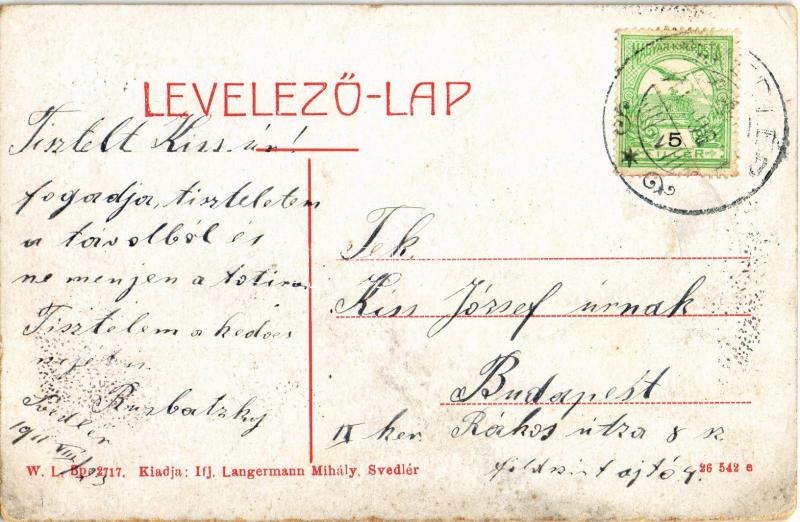 LEVELEZŐ-LAP
MAGYAR KIR. POSTA
5
FILLÉR
SVEDLÉR
Tisztelt Kiss úr!
fogadja, tiszteletem
a távolból és
ne menjen a
Tisztelem a kedves
nejét
Ruzbatzky
Svedlér
1911 VIII/23
Tek.
Kiss József úrnak
Budapest
IX ker Rákos utza 8 sz
földszint ajtó 4.
W. L. Bp. 2717. Kiadja: Ifj. Langermann Mihály, Svedlér
26 542 e